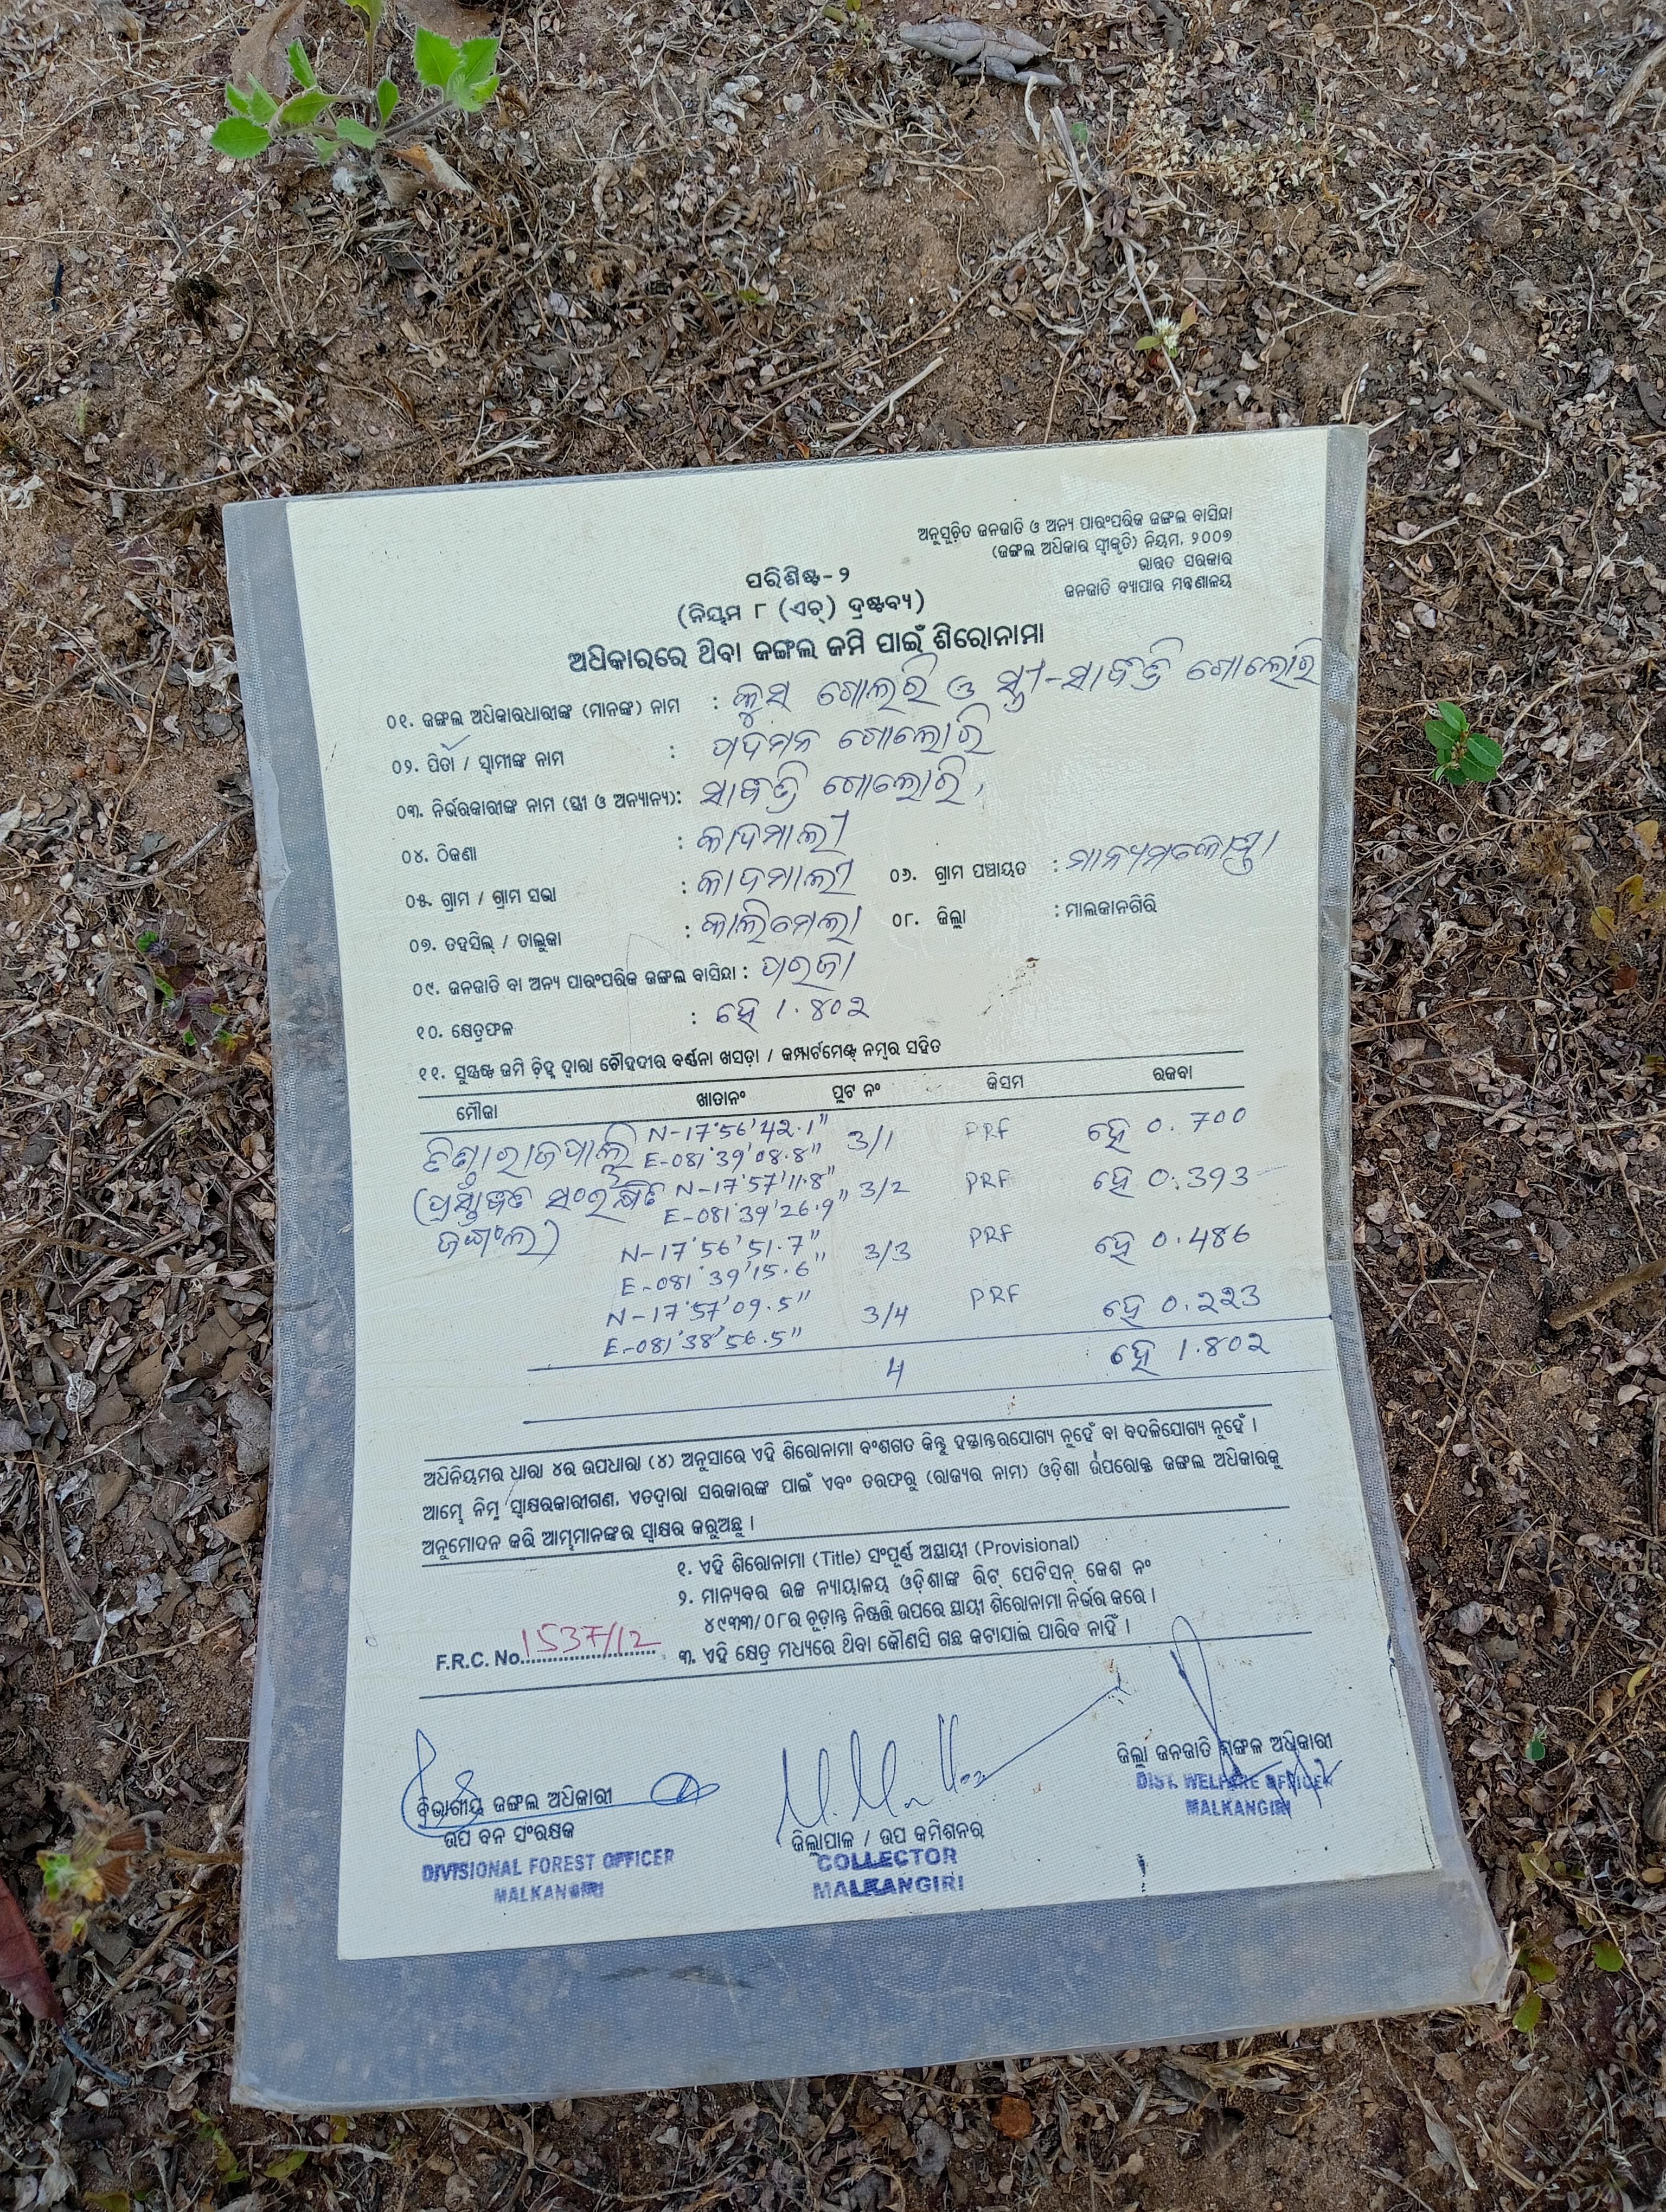 ଅନୁସୂଚିତ ଜନଜାତି ଓ ଅନ୍ୟ ପାରଂପରିକ ଜଙ୍ଗଲ ବାସିନ୍ଦା
(ଜଙ୍ଗଲ ଅଧିକାର ସ୍ୱୀକୃତି) ନିୟମ, ୨୦୦୭
ଭାରତ ସରକାର
ଜନଜାତି ବ୍ୟାପାର ମନ୍ତ୍ରଣାଳୟ
ପରିଶିଷ୍ଟ-୨
(ନିୟମ ୮ (ଏଚ୍) ଦ୍ରଷ୍ଟବ୍ୟ)
ଅଧିକାରରେ ଥିବା ଜଙ୍ଗଲ ଜମି ପାଇଁ ଶିରୋନାମା
୦୧. ଜଙ୍ଗଲ ଅଧିକାରଧାରୀଙ୍କ (ମାନଙ୍କ) ନାମ : ଗୋଲରି ଓ ସ୍ତ୍ରୀ-ସାବିତ୍ରି ଗୋଲୋରି
୦୨. ପିତା / ସ୍ୱାମୀଙ୍କ ନାମ : ପଦମନ ଗୋଲୋରି
୦୩. ନିର୍ଭରକାରୀଙ୍କ ନାମ (ସ୍ତ୍ରୀ ଓ ଅନ୍ୟାନ୍ୟ): ସାବିତ୍ରି ଗୋଲୋରି,
୦୪. ଠିକଣା : କାଦମାଲୀ
୦୫. ଗ୍ରାମ / ଗ୍ରାମ ସଭା : କାଦମାଲୀ ୦୬. ଗ୍ରାମ ପଞ୍ଚାୟତ : ମାନ୍ୟମକୋଣ୍ଡା
୦୭. ତହସିଲ୍ / ତାଲୁକା : କାଲିମେଲା ୦୮. ଜିଲ୍ଲା : ମାଲକାନଗିରି
୦୯. ଜନଜାତି ବା ଅନ୍ୟ ପାରଂପରିକ ଜଙ୍ଗଲ ବାସିନ୍ଦା : ପରଜା
୧୦. କ୍ଷେତ୍ରଫଳ : ହେ 1.୪୦୨
୧୧. ସୁସ୍ପଷ୍ଟ ଜମି ଚିହ୍ନ ଦ୍ୱାରା ଚୌହଦୀର ବର୍ଣ୍ଣନା ଖସଡ଼ା / କମ୍ପାର୍ଟମେଣ୍ଟ ନମ୍ବର ସହିତ
ମୌଜା ଖାତାନଂ ପ୍ଲଟ ନଂ କିସମ ରକବା
N-17°56'42.1" 3/1 PRF ହେ 0.700
E-081°39'08.8"
(ପ୍ରସ୍ତାବିତ ସଂରକ୍ଷିତ N-17°57'11.8" 3/2 PRF ହେ 0.393
E-081°39'26.9"
ଜଙ୍ଗଲ) N-17°56'51.7" 3/3 PRF ହେ 0.486
E-081°39'15.6"
N-17°57'09.5" 3/4 PRF ହେ 0.223
E-081°38'56.5"
4 ହେ 1.802
ଅଧିନିୟମର ଧାରା ୪ର ଉପଧାରା (୪) ଅନୁସାରେ ଏହି ଶିରୋନାମା ବଂଶଗତ କିନ୍ତୁ ହସ୍ତାନ୍ତରଯୋଗ୍ୟ ନୁହେଁ ବା ବଦଳିଯୋଗ୍ୟ ନୁହେଁ ।
ଆମ୍ଭେ ନିମ୍ନ ସ୍ୱାକ୍ଷରକାରୀଗଣ, ଏତଦ୍ୱାରା ସରକାରଙ୍କ ପାଇଁ ଏବଂ ତରଫରୁ (ରାଜ୍ୟର ନାମ) ଓଡ଼ିଶା ଉପରୋକ୍ତ ଜଙ୍ଗଲ ଅଧିକାରକୁ
ଅନୁମୋଦନ କରି ଆମ୍ଭମାନଙ୍କର ସ୍ୱାକ୍ଷର କରୁଅଛୁ ।
୧. ଏହି ଶିରୋନାମା (Title) ସଂପୂର୍ଣ୍ଣ ଅସ୍ଥାୟୀ (Provisional)
୨. ମାନ୍ୟବର ଉଚ୍ଚ ନ୍ୟାୟାଳୟ ଓଡ଼ିଶାଙ୍କ ରିଟ୍ ପେଟିସନ୍ କେଶ ନଂ
୪୯୩୩/୦୮ର ଚୂଡ଼ାନ୍ତ ନିଷ୍ପତ୍ତି ଉପରେ ସ୍ଥାୟୀ ଶିରୋନାମା ନିର୍ଭର କରେ ।
F.R.C. No. 1537/12 ୩. ଏହି କ୍ଷେତ୍ର ମଧ୍ୟରେ ଥିବା କୌଣସି ଗଛ କଟାଯାଇ ପାରିବ ନାହିଁ ।
ବିଭାଗୀୟ ଜଙ୍ଗଲ ଅଧିକାରୀ
ଉପ ବନ ସଂରକ୍ଷକ
DIVISIONAL FOREST OFFICER
MALKANGIRI
ଜିଲ୍ଲାପାଳ / ଉପ କମିଶନର
COLLECTOR
MALKANGIRI
ଜିଲ୍ଲା ଜନଜାତି ମଙ୍ଗଳ ଅଧିକାରୀ
DIST. WELFARE OFFICER
MALKANGIRI